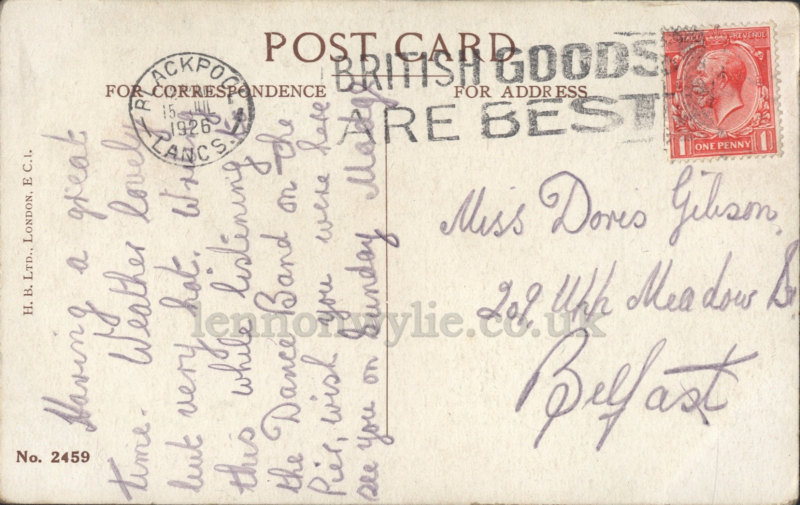 POST CARD
FOR CORRESPONDENCE
FOR ADDRESS
BLACKPOOL
15 JUL
1926
LANCS.
BRITISH GOODS
ARE BEST
ONE PENNY
1 1
Having a great
time. Weather lovely
but very hot.
this while listening to
the Dance Band on the
Pier, wish you were here
see you on Sunday Madge
Miss Doris Gibson,
209, Upp Meadow St
Belfast
H. B. LTD., LONDON, E C 1.
No. 2459
lennonwylie.co.uk